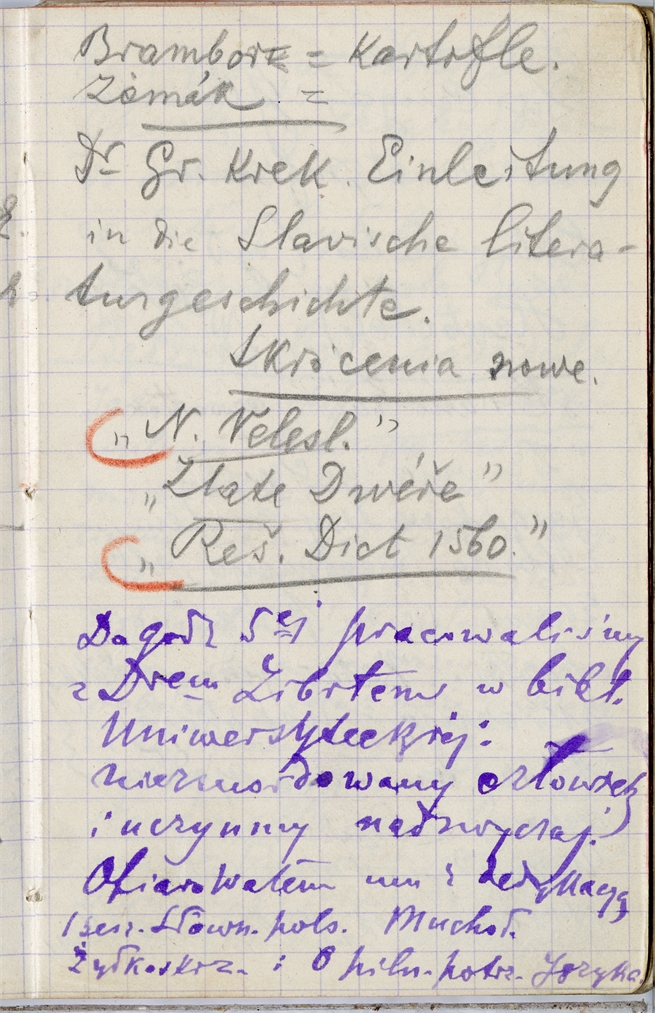 Brambory = Kartofle.
Zemák =
Dr Gr. Krek. Einleitung
in die Slavische litera-
turgeschichte.
Skrócenia nowe.
„N. Velesl."
„Zlate Dwéře"
„Reš. Dict 1560."
Do godz 5ej pracowaliśmy
z Drem Zibrtem w bibl.
Uniwersyteckiéj:
niezmordowany człowiek
i uczynny nadzwyczaj.
Ofiarowałem mu z dedykacyą
Słown. pols. Muchoł.
i O piln. potrz. Języka